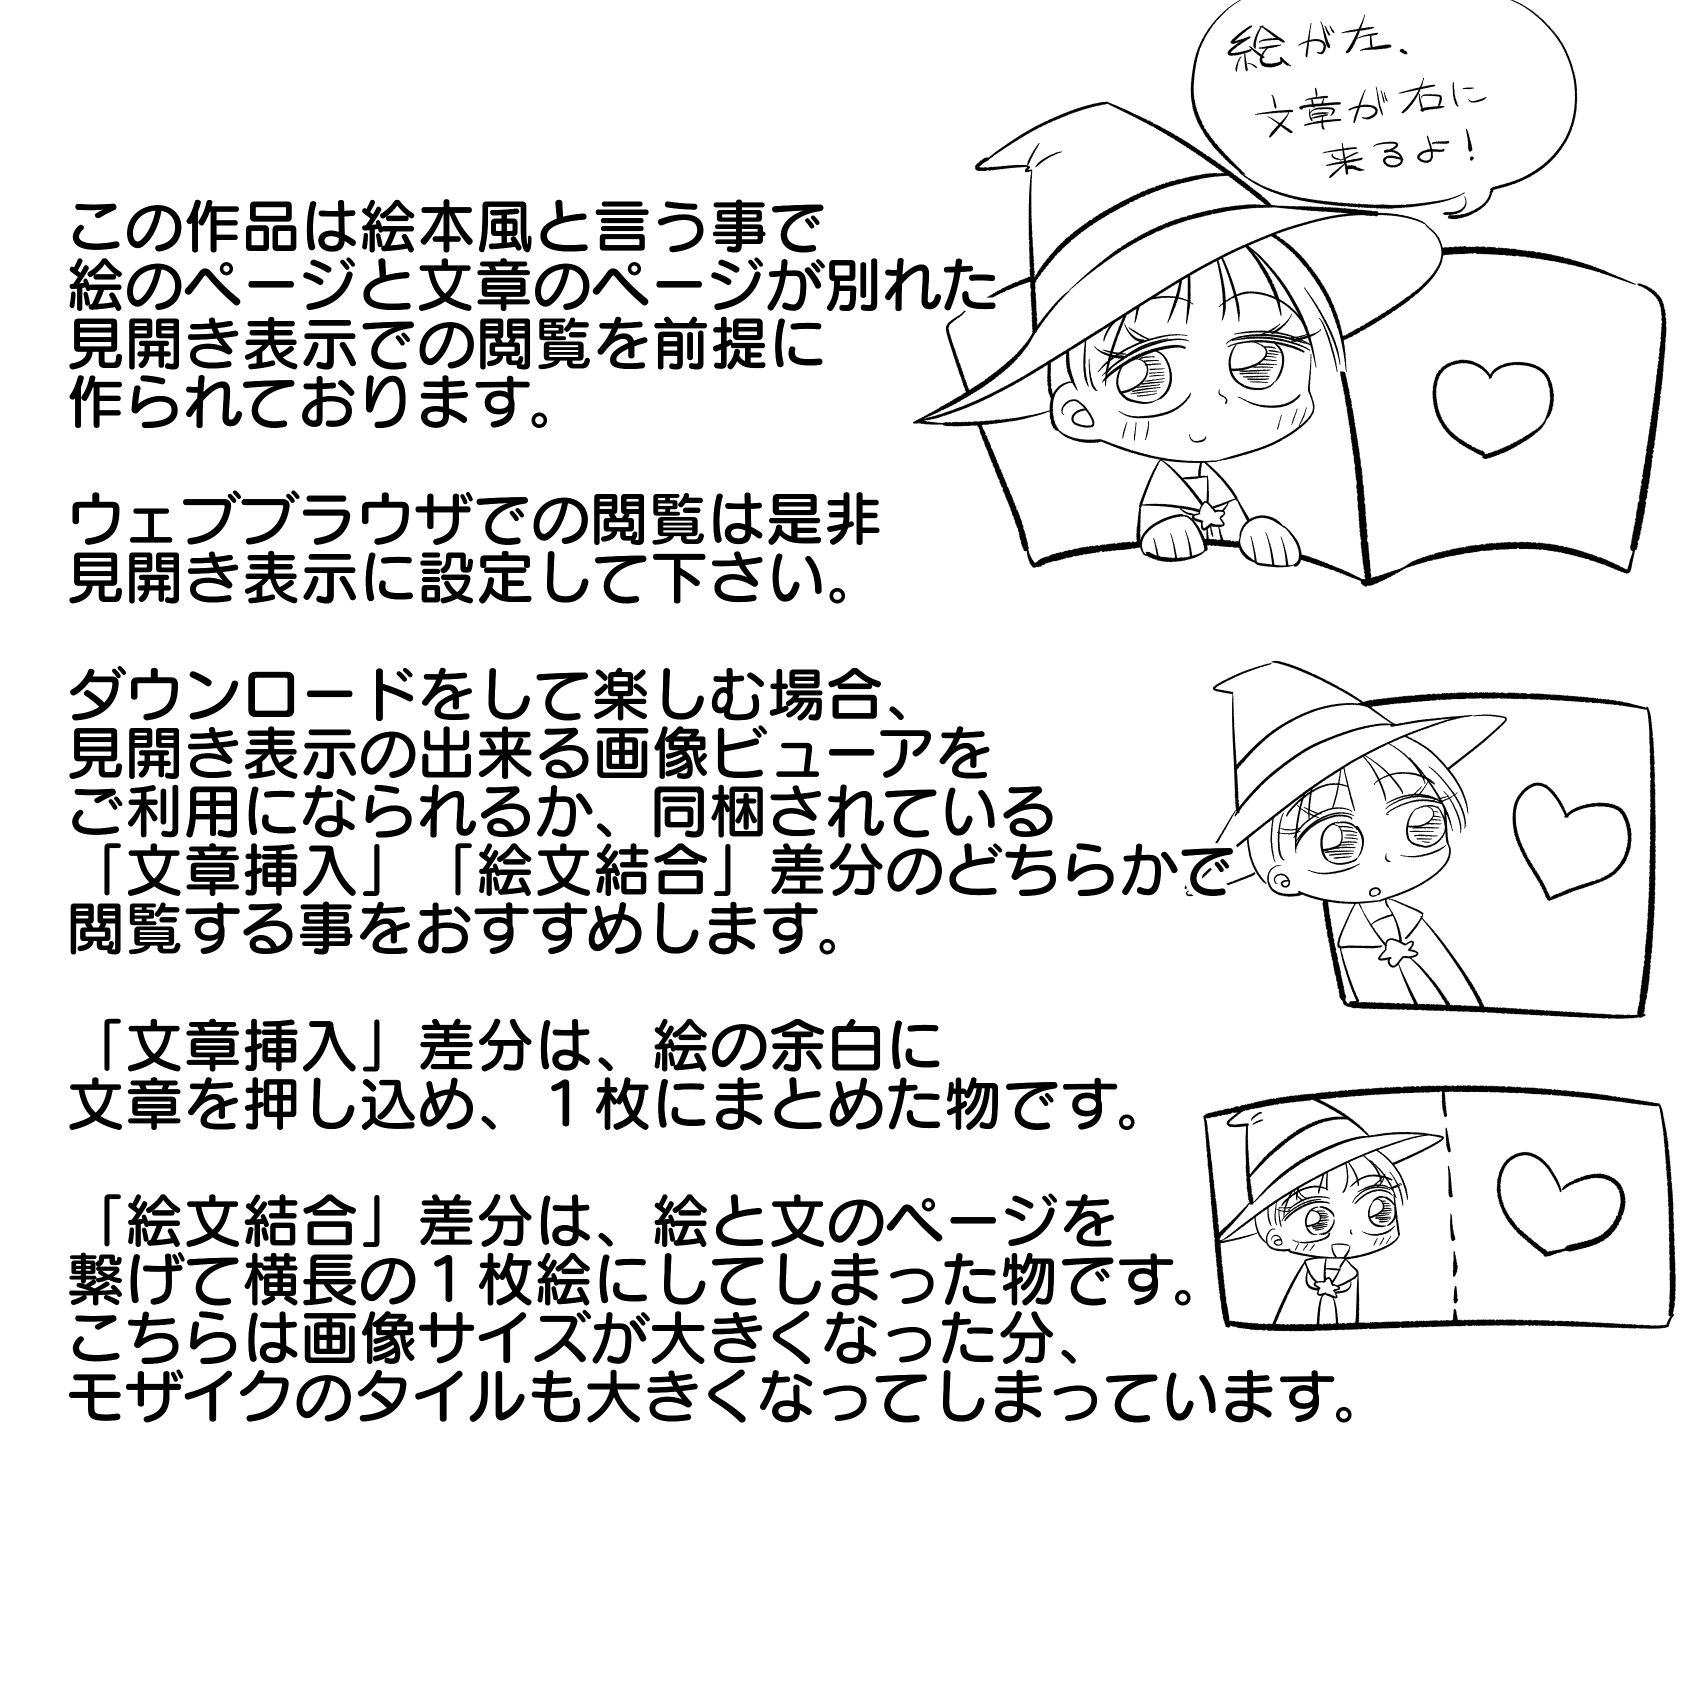 絵が左、
文章が右に
来るよ！
この作品は絵本風と言う事で
絵のページと文章のページが別れた
見開き表示での閲覧を前提に
作られております。
ウェブブラウザでの閲覧は是非
見開き表示に設定して下さい。
ダウンロードをして楽しむ場合、
見開き表示の出来る画像ビューアを
ご利用になられるか、同梱されている
「文章挿入」「絵文結合」差分のどちらかで
閲覧する事をおすすめします。
「文章挿入」差分は、絵の余白に
文章を押し込め、１枚にまとめた物です。
「絵文結合」差分は、絵と文のページを
繋げて横長の１枚絵にしてしまった物です。
こちらは画像サイズが大きくなった分、
モザイクのタイルも大きくなってしまっています。